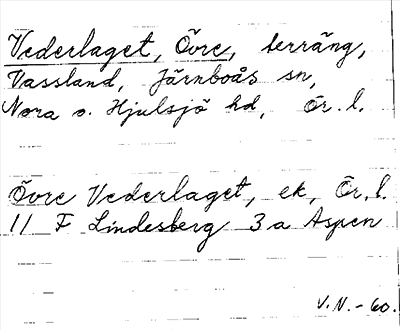 Vederlaget, Övre, terräng,
Vassland, Järnboås sn,
Nora o. Hjulsjö hd, Ör. l.
Övre Vederlaget, ek, Ör. l.
11 F Lindesberg 3 a Aspen
V. N. - 60.